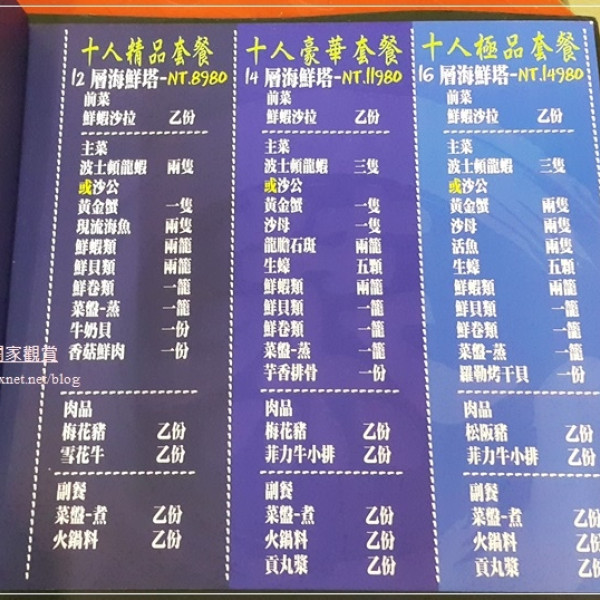 十人精品套餐
12 層海鮮塔-NT.8980
前菜
鮮蝦沙拉 乙份
主菜
波士頓龍蝦 兩隻
或沙公
黃金蟹 一隻
現流海魚 兩隻
鮮蝦類 兩籠
鮮貝類 兩籠
鮮卷類 一籠
菜盤-蒸 一籠
牛奶貝 一份
香菇鮮肉 一份
肉品
梅花豬 乙份
雪花牛 乙份
副餐
菜盤-煮 乙份
火鍋料 乙份
十人豪華套餐
14 層海鮮塔-NT.11980
前菜
鮮蝦沙拉 乙份
主菜
波士頓龍蝦 三隻
或沙公
黃金蟹 一隻
沙母 一隻
龍膽石斑 兩籠
生蠔 五顆
鮮蝦類 兩籠
鮮貝類 一籠
鮮卷類 一籠
菜盤-蒸 一籠
芋香排骨 一份
肉品
梅花豬 乙份
菲力牛小排 乙份
副餐
菜盤-煮 乙份
火鍋料 乙份
貢丸漿 乙份
十人極品套餐
16 層海鮮塔-NT.14980
前菜
鮮蝦沙拉 乙份
主菜
波士頓龍蝦 三隻
或沙公
黃金蟹 兩隻
沙母 兩隻
活魚 兩隻
生蠔 五顆
鮮蝦類 兩籠
鮮貝類 一籠
鮮卷類 一籠
菜盤-蒸 一籠
羅勒烤干貝 一份
肉品
松阪豬 乙份
菲力牛小排 乙份
副餐
菜盤-煮 乙份
火鍋料 乙份
貢丸漿 乙份
家觀賞
xnet.net/blog